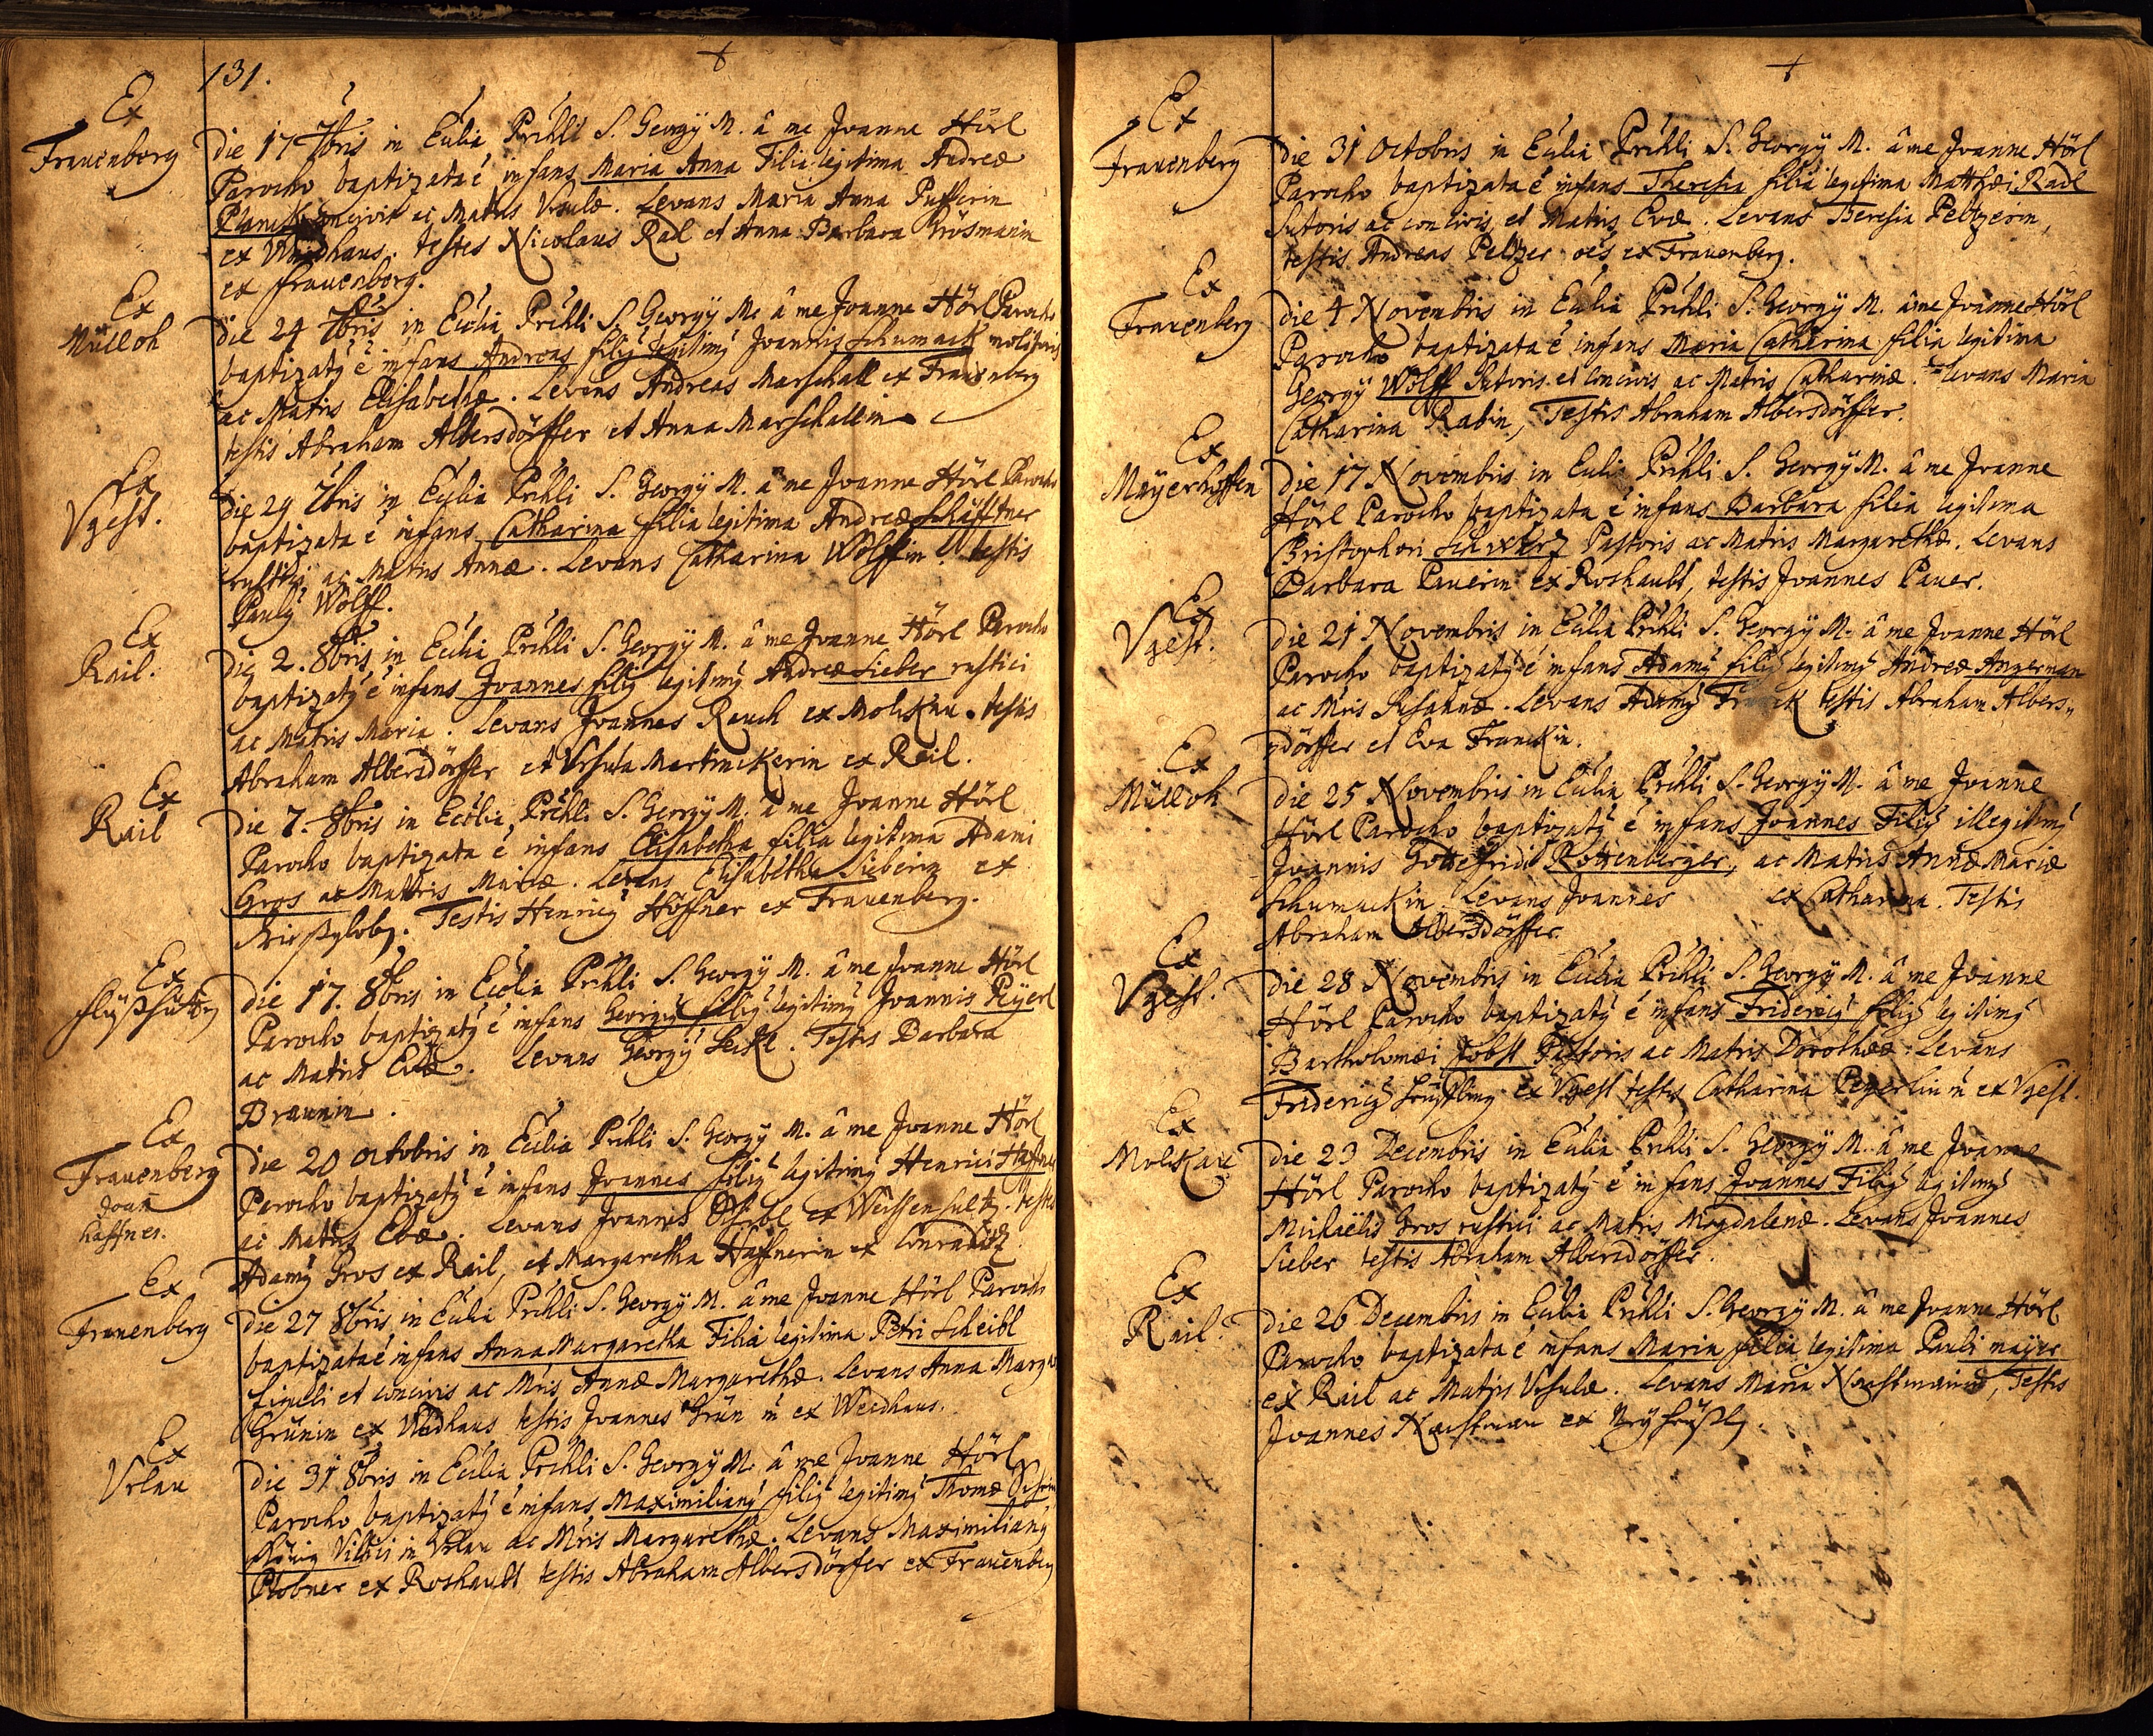 131.
Ex
Frauenberg
die 17 7bris in Ecclia Prchli S. Georgÿ M. â me Joanne Hörl
Parocho baptizata é infans Maria Anna Filia legitima Andreæ
Planck concivis ac Matris Vrsulæ. Levans Maria Anna
ex Waidhaus. testes Nicolaus Rad et Anna Barbara Grösmanin
ex frauenberg.
Ex
Mülloh
die 24 7bris in Ecclia Prchli S. Georgÿ M. â me Joanne Hörl Parocho
baptizatÿ é infans Andreas filiÿ legitimÿ Joannis Schumack molitoris
ac Matris Elisabethæ. Levans Andreas Marschall ex Frauenberg
testis Abraham Albersdörffer et Anna Marschallin
Ex
Vgest.
die 29 7bris in Ecclia Prchli S. Georgÿ M. â me Joanne Hörl Parocho
baptizata é infans Catharina filia legitima Andreæ Schäfftner
rustici ac Matris Annæ. Levans Catharina Wolffin. testis
Paulÿ Wolff.
Ex
Rail.
die 2. 8bris in Ecclia Prchli S. Georgÿ M. â me Joanne Hörl Parocho
baptizatÿ é infans Joannes filiÿ legitimÿ Andreæ Sieber rustici
ac Matris Maria. Levans Joannes Rauch ex Molskau. testis
Abraham Albersdörffer et Vrsula Martinckerin ex Rail.
Ex
Rail
die 7. 8bris in Ecclia Prchli S. Georgÿ M. â me Joanne Hörl
Parocho baptizata é infans Elisabetha filia legitima Adami
Gros ac Matris Mariæ. Levans Elisabetha Sieberin ex
Testis Henricÿ Höffner ex Frauenberg.
Ex
die 17. 8bris in Ecclia Prchli S. Georgÿ M. â me Joanne Hörl
Parocho baptizatÿ é infans Georgiÿ filiÿ legitimÿ Joannis Peÿerl
ac Matris Evæ. Levans Georgÿ Testis Barbara
Braunin.
Ex
Frauenberg
Joan
haffner.
die 20 octobris in Ecclia Prchli S. Georgÿ M. â me Joanne Hörl
Parocho baptizatÿ é infans Joannes filiÿ legitimÿ Henrici Haffner
ac Matris Evæ. Levans Joannes ex Weissensultz. testes
Adamÿ Gros ex Rail, et Margaretha Haffnerin ex
Ex
Frauenberg
die 27 8bris in Ecclia Prchli S. Georgÿ M. â me Joanne Hörl Parocho
baptizata é infans Anna Margaretha Filia legitima Petri Scheibl
figuli et concivis ac Mris Annæ Margarethæ. Levans Anna Marga
Grünin ex Weidhaus testis Joannes Grün ex Weidhaus.
Ex
Vrlau
die 31 8bris in Ecclia Prchli S. Georgÿ M. â me Joanne Hörl
Parocho baptizatÿ é infans Maximilianÿ filiÿ legitimÿ Thomæ
Villici in Vrlau ac Mris Margarethæ. Levans Maximilianÿ
Plobner ex Roshaubt testis Abraham Albersdörfer ex Frauenberg
Ex
Frauenberg
die 31 Octobris in Ecclia Prchli S. Georgÿ M. â me Joanne Hörl
Parocho baptizata é infans Theresia filia legitima Matthæi Radl
Sutoris ac concivis, et Matris Evæ. Levans Theresia Peltzerin,
testis Andreas Peltzer oes ex Frauenberg.
Ex
Frauenberg
die 4 Novembris in Ecclia Prchli S. Georgÿ M. â me Joanne Hörl
Parocho baptizata é infans Maria Catharina filia legitima
Georgÿ Wolff Sutoris et concivis ac Matris Catharinæ. Levans Maria
Catharina Rabin, Testis Abraham Albersdörffer.
Ex
Mayerhoffen
die 17 Novembris in Ecclia Prchli S. Georgÿ M. â me Joanne
Hörl Parocho baptizata é infans Barbara filia legitima
Christophori Schwartz Pastoris ac Matris Margarethæ. Levans
Barbara Pauerin ex Roshaubt, testis Joannes Pauer.
Ex
Vgest.
die 21 Novembris in Ecclia Prchli S. Georgÿ M. â me Joanne Hörl
Parocho baptizatÿ é infans Adamÿ filiÿ legitimÿ Andreæ Angerman
ac Mris Susannæ. Levans Adamÿ Franck testis Abraham Albers„
dörffer et Eva Franckin.
Ex
Mülloh
die 25 Novembris in Ecclia Prchli S. Georgÿ M. â me Joanne
Hörl Parocho baptizatÿ é infans Joannes Filiÿ illegitimÿ
Joannis Gottefridi Rottenberger, ac Matris Annæ Mariæ
Schumackin. Levans Joannes ex Catharina. Testis
Abraham Albersdörffer.
Ex
Vgest.
die 28 Novembris in Ecclia Prchli S. Georgÿ M. â me Joanne
Hörl Parocho baptizatÿ é infans Fridericÿ filiÿ legitimÿ
Bartholomæi Jobst Pastoris ac Matris Dorotheæ. Levans
Fridericÿ ex Vgest testis Catharina Peyerlin ex Vgest.
Ex
Molskau
die 23 Decembris in Ecclia Prchli S. Georgÿ M. â me Joanne
Hörl Parocho baptizatÿ é infans Joannes Filiÿ legitimÿ
Michaëlis Gros rustici ac Matris Magdalenæ. Levans Joannes
Sieber testis Abraham Albersdörffer.
Ex
Rail.
die 26 Decembris in Ecclia Prchli S. Georgÿ M. â me Joanne Hörl
Parocho baptizata é infans Maria filia legitima Pauli mayer
ex Rail ac Matris Vrsulæ. Levans Maria Testis
Joannes ex